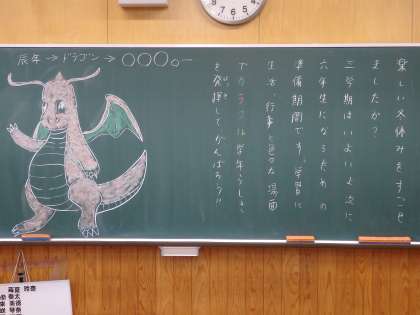 辰年→ドラゴン→〇〇〇。ー
楽しい冬休みをすごせ
ましたか？
三学期はいよいよ次に
六年生になるための
準備期間です。学習に
生活、行事と色々な場面
を発揮してがんばろう!!